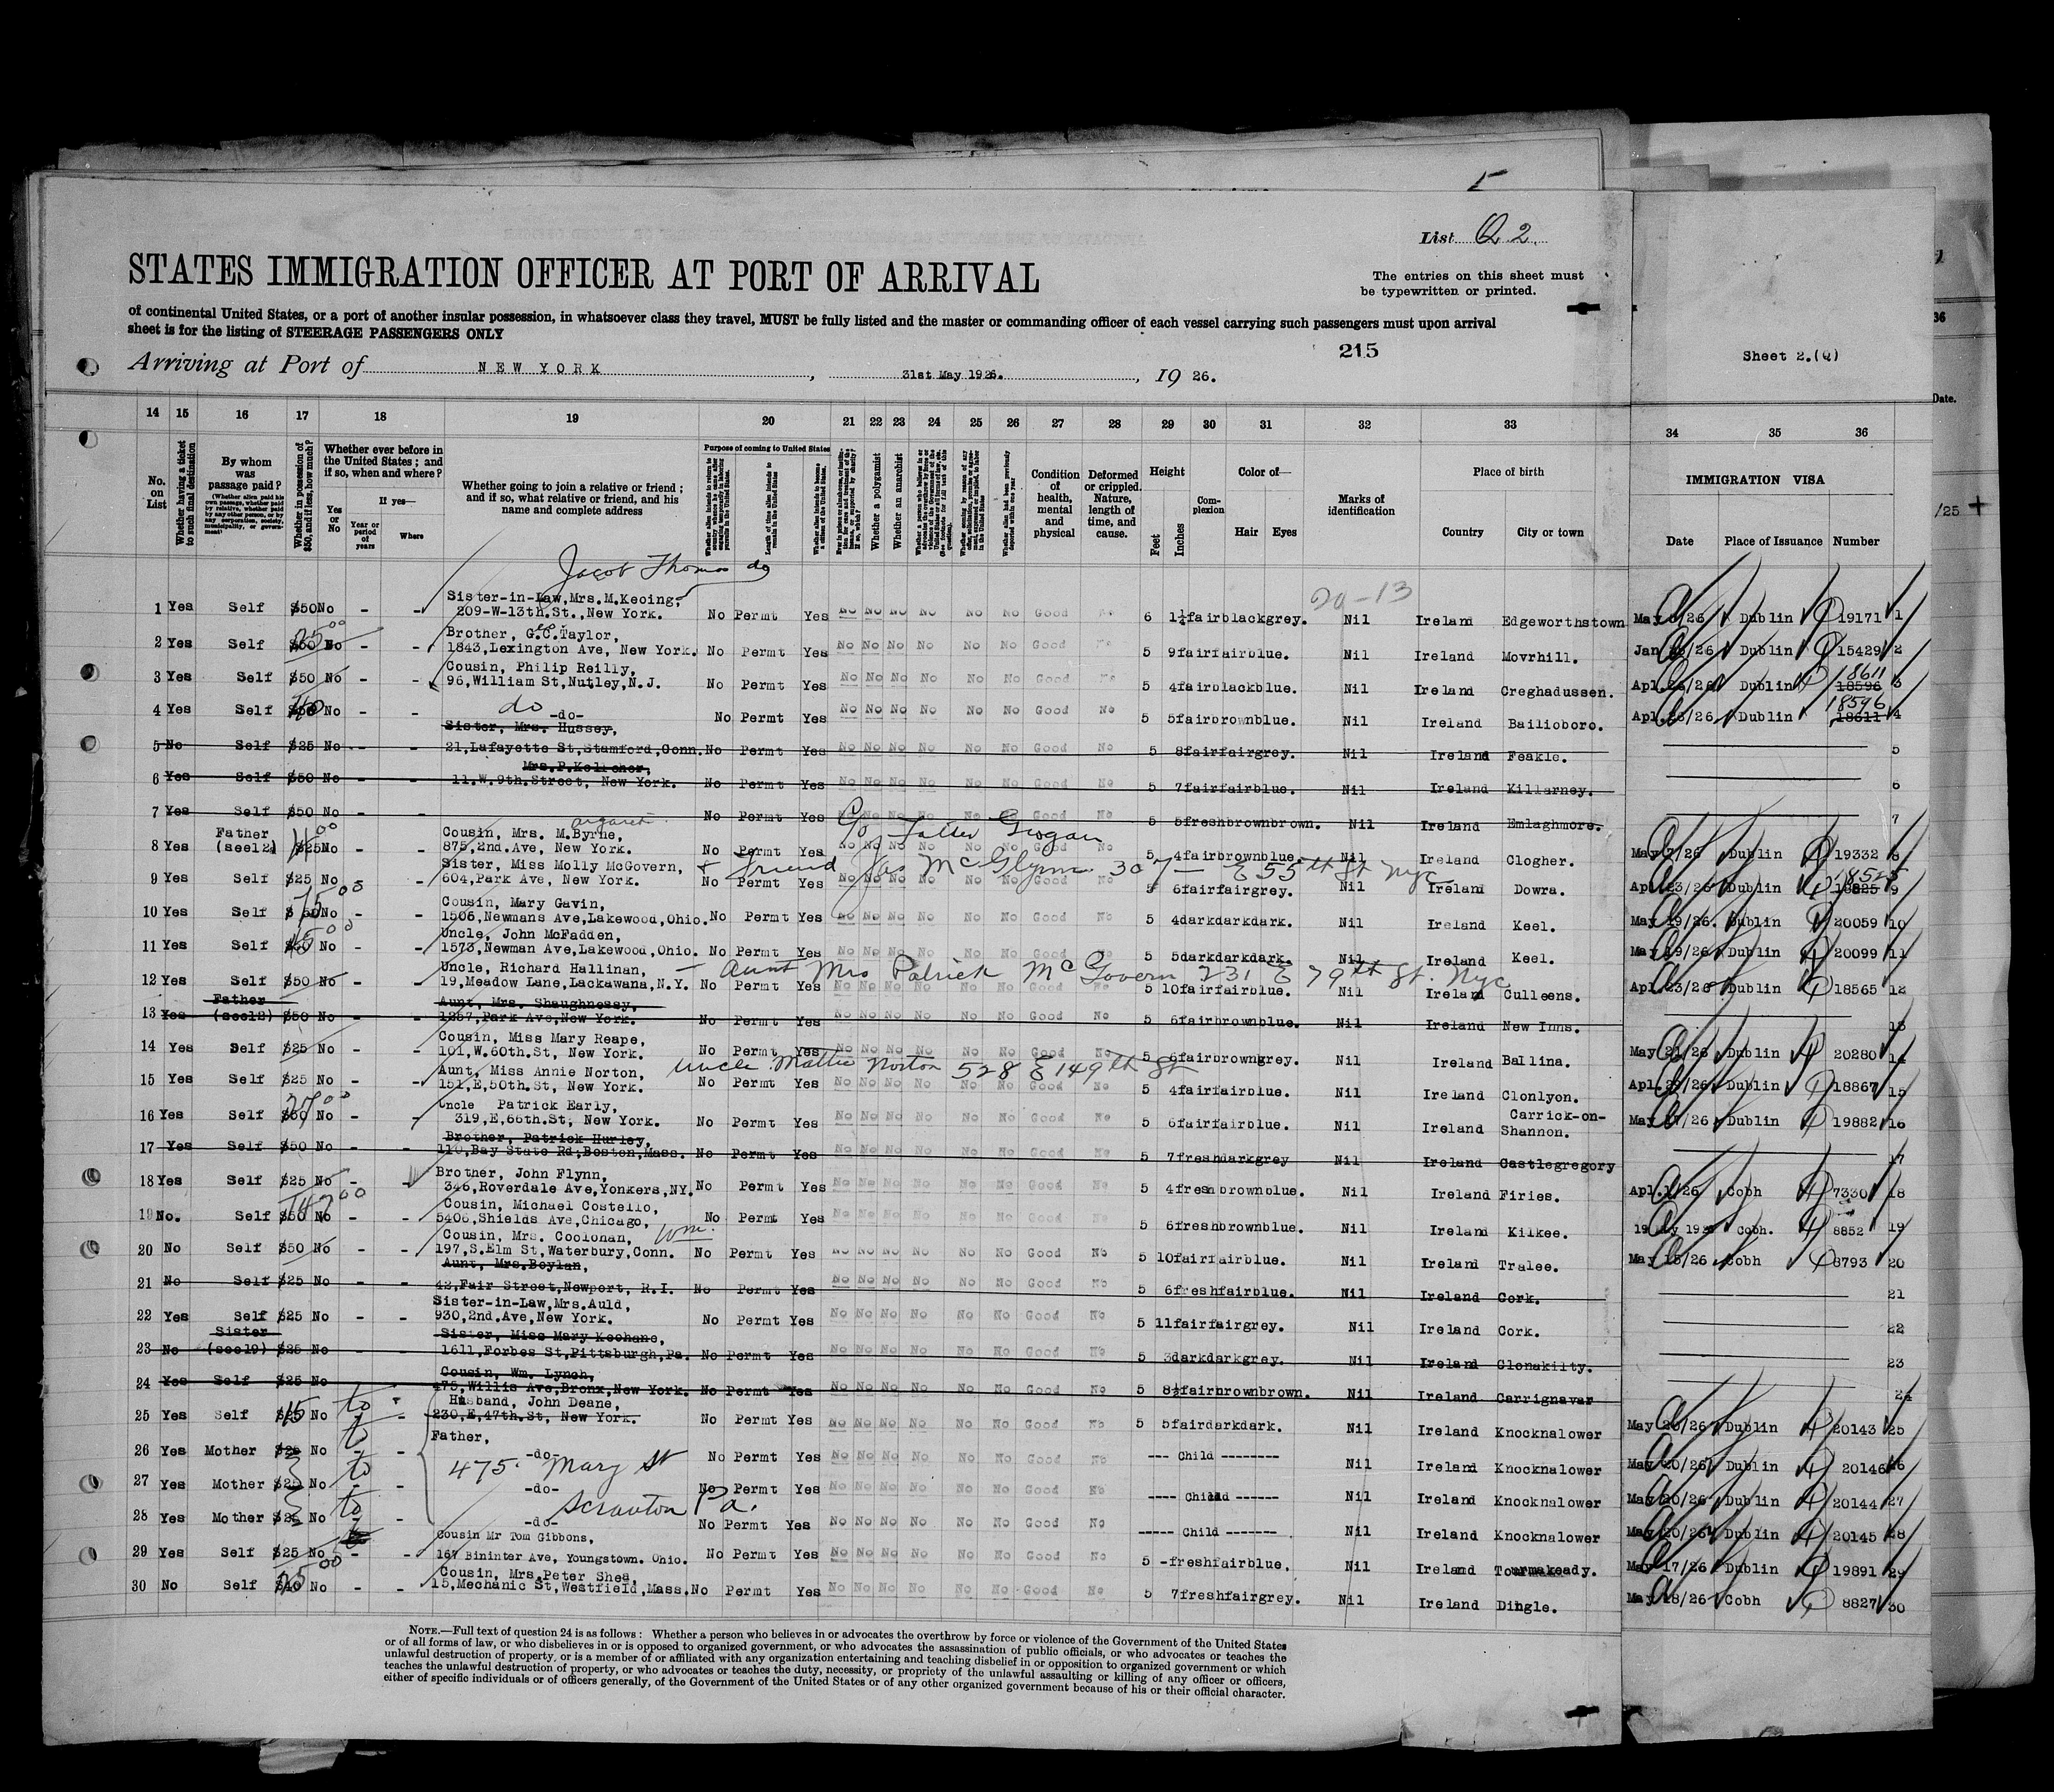 5
List Q 2.
STATES IMMIGRATION OFFICER AT PORT OF ARRIVAL
The entries on this sheet must
be typewritten or printed.
of continental United States, or a port of another insular possession, in whatsoever class they travel, MUST be fully listed and the master or commanding officer of each vessel carrying such passengers must upon arrival
sheet is for the listing of STEERAGE PASSENGERS ONLY
215
Sheet 2.(Q)
Arriving at Port of NEW YORK, 31st May 1926., 19 26.
36
Date.
/25 +
14 15 16 17 18 19 20 21 22 23 24 25 26 27 28 29 30 31 32 33 34 35 36
No. on List
Whether having a ticket to such final destination
By whom was passage paid?
Whether in possession of $50, and if less, how much?
Whether ever before in the United States; and if so, when and where?
Yes or No
If yes—
Year or period of years
Where
Whether going to join a relative or friend; and if so, what relative or friend, and his name and complete address
Purpose of coming to United States
Whether a polygamist
Whether an anarchist
Condition of health, mental and physical
Deformed or crippled. Nature, length of time, and cause.
Height
Feet Inches
Complexion
Color of—
Hair Eyes
Marks of identification
Place of birth
Country City or town
IMMIGRATION VISA
Date Place of Issuance Number
Jacob Thomas do
20-13
1 Yes Self $50 No - - Sister-in-Law, Mrs.M.Keoing, 209-W-13th.St., New York. No Permt Yes No No No No No No Good No 6 1½ fair black grey. Nil Ireland Edgeworthstown May /26 Dublin 19171 1
2 Yes Self $50 No - - Brother, G.C.Taylor, 1843,Lexington Ave, New York. No Permt Yes No No No No No No Good No 5 9 fair fair blue. Nil Ireland Movrhill. Jan /26 Dublin 15429 2
3 Yes Self $50 No - - Cousin, Philip Reilly, 96,William St,Nutley,N.J. No Permt Yes No No No No No No Good No 5 4 fair black blue. Nil Ireland Creghadussen. Apl.23/26 Dublin 18596 18611 3
4 Yes Self No - - -do- do No Permt Yes No No No No No No Good No 5 5 fair brown blue. Nil Ireland Bailioboro. Apl.23/26. Dublin 18611 18596 4
5 No Self $25 No - - Sister, Mrs. Hussey, 21,Lafayette St,Stamford,Conn. No Permt Yes No No No No No No Good No 5 8 fair fair grey. Nil Ireland Feakle. 5
6 Yes Self $50 No - - Mrs.P.Kelleher, 11.W.9th.Street, New York. No Permt Yes No No No No No No Good No 5 7 fair fair blue. Nil Ireland Killarney. 6
7 Yes Self $50 No - - No Permt Yes No No No No No Good No 5 5 fresh brown brown. Nil Ireland Emlaghmore. 7
c/o Father Grogan
8 Yes Father (see12) $25 No - - Cousin, Mrs. M.Byrne, 875,2nd.Ave, New York. No Permt Yes No No No No No No Good No 5 4 fair brown blue. Nil Ireland Clogher. May 7/26 Dublin 19332 8
+ friend Jas McGlynn 307 - E 55th St Nyc
9 Yes Self $25 No - - Sister, Miss Molly McGovern, 604,Park Ave, New York. No Permt Yes No No No No No No Good No 5 6 fair fair grey. Nil Ireland Dowra. Apl.23/26 Dublin 18825 18525 9
10 Yes Self No - - Cousin, Mary Gavin, 1506,Newmans Ave,Lakewood,Ohio. No Permt Yes No No No No No No Good No 5 4 dark dark dark. Nil Ireland Keel. May 19/26. Dublin 20059 10
11 Yes Self No - - Uncle, John McFadden, 1573,Newman Ave,Lakewood,Ohio. No Permt Yes No No No No No No Good No 5 5 dark dark dark. Nil Ireland Keel. May 19/26 Dublin 20099 11
- Aunt Mrs Patrick McGovern 231 E 79th St. Nyc
12 Yes Self $50 No - - Uncle, Richard Hallinan, 19,Meadow Lane,Lackawana,N.Y. No Permt Yes No No No No No No Good No 5 10 fair fair blue. Nil Ireland Culleens. Apl.23/26 Dublin 18565 12
13 Yes Father (see12) $50 No - - Aunt, Mrs. Shaughnessy, 1267,Park Ave,New York. No Permt Yes No No No No No No Good No 5 6 fair brown blue. Nil Ireland New Inns. 13
14 Yes Self $25 No - - Cousin, Miss Mary Reape, 101,W.60th.St, New York. No Permt Yes No No No No No No Good No 5 6 fair brown grey. Nil Ireland Ballina. May 21/26 Dublin 20280 14
Uncle Mattie Norton 528 E 149th St
15 Yes Self $25 No - - Aunt, Miss Annie Norton, 151,E,50th.St, New York. No Permt Yes No No No No No No Good No 5 4 fair fair blue. Nil Ireland Clonlyon. Apl.28/26 Dublin 18867 15
16 Yes Self No - - Uncle Patrick Early, 319,E,66th.St, New York. No Permt Yes No No No No No No Good No 5 6 fair fair blue. Nil Ireland Carrick-on-Shannon. May 17/26 Dublin 19882 16
17 Yes Self $50 No - - Brother, Patrick Hurley, 110,Bay State Rd;Boston,Mass. No Permt Yes No No No No No No Good No 5 7 fresh dark grey Nil Ireland Castlegregory 17
18 Yes Self $25 No - - Brother, John Flynn, 346,Roverdale Ave,Yonkers,NY. No Permt Yes No No No No No No Good No 5 4 fresh brown blue. Nil Ireland Firies. Apl.1/26 Cobh 7330 18
19 No. Self $50 No - - Cousin, Michael Costello, 5406,Shields Ave,Chicago, No Permt Yes No No No No No No Good No 5 6 fresh brown blue. Nil Ireland Kilkee. 19 May 192 Cobh. 8852 19
20 No Self $50 No - - Cousin, Mrs. Coolohan, Wm. 197,S.Elm St,Waterbury,Conn. No Permt Yes No No No No No No Good No 5 10 fair fair blue. Nil Ireland Tralee. May 15/26 Cobh 8793 20
21 No Self $25 No - - Aunt, Mrs.Boylan, 42,Fair Street,Newport, R.I. No Permt Yes No No No No No No Good No 5 6 fresh fair blue. Nil Ireland Cork. 21
22 Yes Self $25 No - - Sister-in-Law,Mrs.Auld, 930,2nd.Ave,New York. No Permt Yes No No No No No No Good No 5 11 fair fair grey. Nil Ireland Cork. 22
23 No Sister (see19) $25 No - - Sister, Miss Mary Keohane, 1611,Forbes St,Pittsburgh,Pa. No Permt Yes No No No No No No Good No 5 3 dark dark grey. Nil Ireland Clonakilty. 23
24 Yes Self $25 No Cousin, Wm. Lynch, 475,Willis Ave,Bronx,New York. No Permt Yes No No No No No No Good No 5 8½ fair brown brown. Nil Ireland Carrignavar 24
25 Yes Self $25 No - Husband, John Deane, 230,E,47th.St, New York. No Permt Yes No No No No No No Good No 5 5 fair dark dark. Nil Ireland Knocknalower May 20/26 Dublin 20143 25
26 Yes Mother $25 No - - Father, -do- No Permt Yes No No No No No No Good No --- Child -------- Nil Ireland Knocknalower May 20/26 Dublin 20146 26
475 Mary St
27 Yes Mother $25 No - - -do- No Permt Yes No No No No No No Good No ---- Child ------ Nil Ireland Knocknalower May 20/26 Dublin 20144 27
Scranton Pa.
28 Yes Mother $25 No - - -do- No Permt Yes No No No No No No Good No ----- Child ------- Nil Ireland Knocknalower May 20/26 Dublin 20145 28
29 Yes Self $25 No - - Cousin Mr Tom Gibbons, 167 Bininter Ave, Youngstown. Ohio. No Permt Yes No No No No No No Good No 5 - fresh fair blue. Nil Ireland Tourmakeady. May 17/26 Dublin 19891 29
30 No Self No - - Cousin, Mrs.Peter Shea, 15,Mechanic St,Westfield,Mass. No Permt Yes No No No No No No Good No 5 7 fresh fair grey. Nil Ireland Dingle. May 18/26 Cobh 8827 30
NOTE.—Full text of question 24 is as follows: Whether a person who believes in or advocates the overthrow by force or violence of the Government of the United States
or of all forms of law, or who disbelieves in or is opposed to organized government, or who advocates the assassination of public officials, or who advocates or teaches the
unlawful destruction of property, or is a member of or affiliated with any organization entertaining and teaching disbelief in or opposition to organized government or which
teaches the unlawful destruction of property, or who advocates or teaches the duty, necessity, or propriety of the unlawful assaulting or killing of any officer or officers,
either of specific individuals or of officers generally, of the Government of the United States or of any other organized government because of his or their official character.